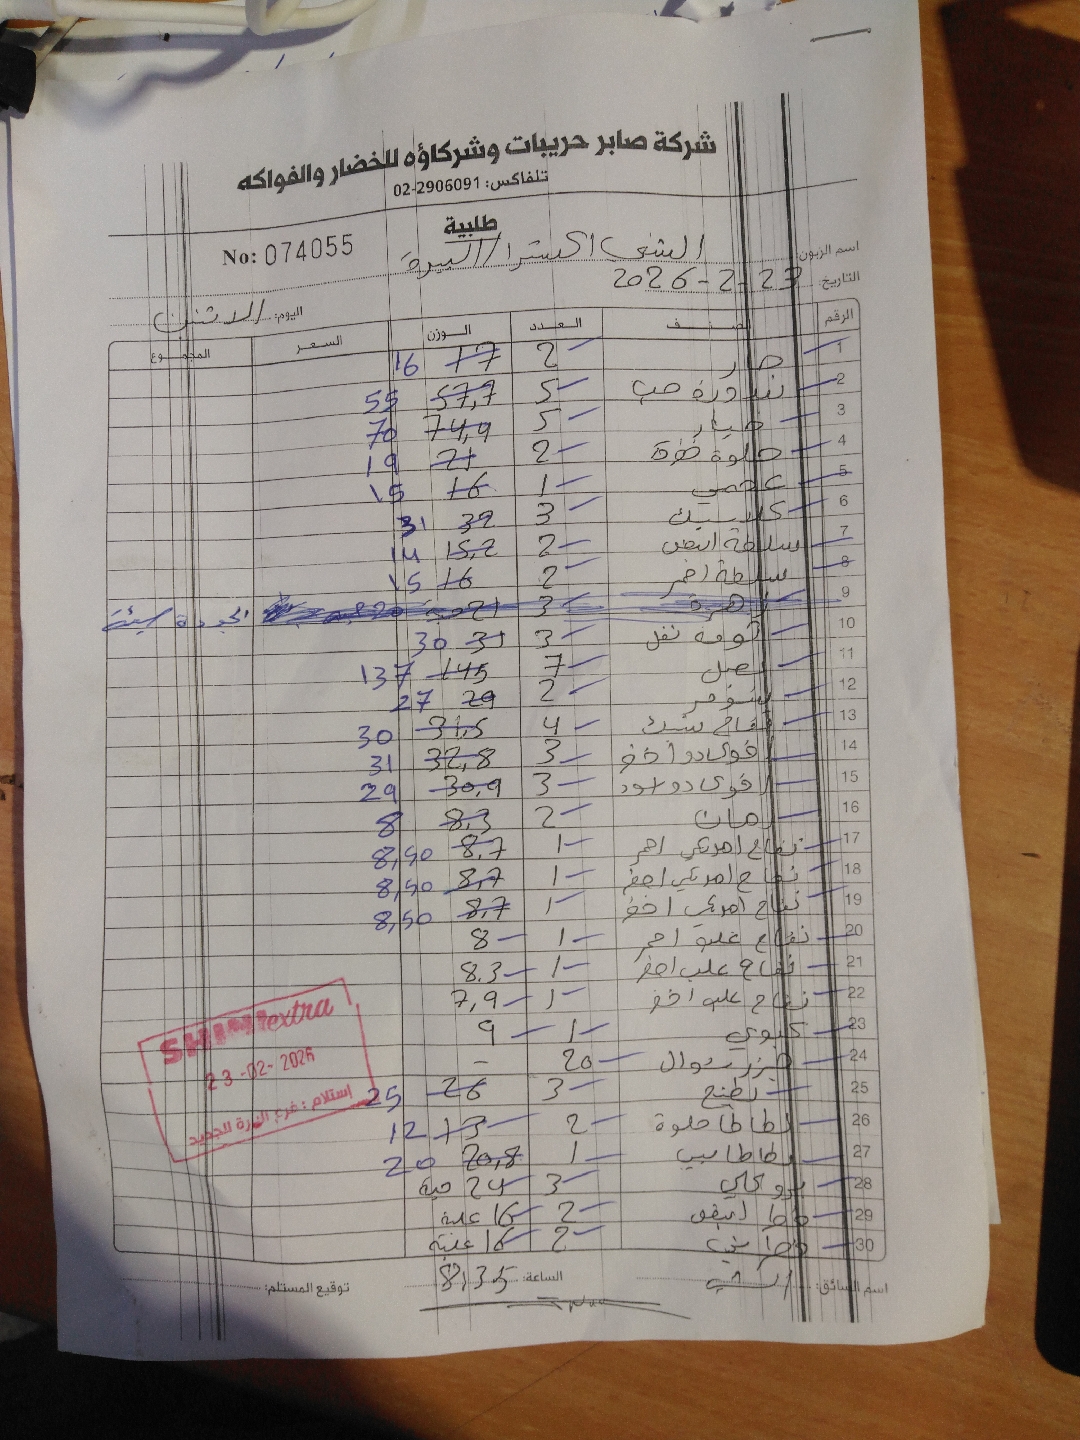 شركة صابر حريبات وشركاؤه للخضار والفواكه
تلفاكس: 02-2906091
طلبية
No: 074055
اسم الزبون: الشني اكسترا / البيرة
التاريخ: 23-2-2026
اليوم: الاثنين
الرقم الصنف العدد الوزن السعر المجموع
1 2 17 16
2 بندورة حب 5 57,7 55
3 خيار 5 74,9 70
4 حلوة 2 21 19
5 عجمي 1 16 15
6 3 32 31
7 سلطة ابيض 2 15,2 14
8 سلطة احمر 2 16 15
9 زهرة 3 21 حبة الجودة سيئة
10 ثومة نفل 3 31 30
11 بصل 7 145 137
12 2 29 27
13 4 31,5 30
14 افوكادو اخضر 3 32,8 31
15 افوكادو اسود 3 30,9 29
16 رمان 2 8,3 8
17 تفاح امريكي احمر 1 8,7 8,50
18 تفاح امريكي اصفر 1 8,7 8,50
19 تفاح امريكي اخضر 1 8,7 8,50
20 تفاح علب احمر 1 8
21 تفاح علب اصفر 1 8.3
22 تفاح علب اخضر 1 7,9
23 كيوي 1 9
24 جزر شوال 20 -
25 3 26 25
26 بطاطا حلوة 2 13 12
27 بطاطا بيبي 1 20,8 20
28 بروكلي 3 24 حبة
29 2 16 علبة
30 2 16 علبة
SHINI extra
23-02-2026
استلام : فرع البيرة الجديد
اسم السائق: الساعة: 8,35 توقيع المستلم: